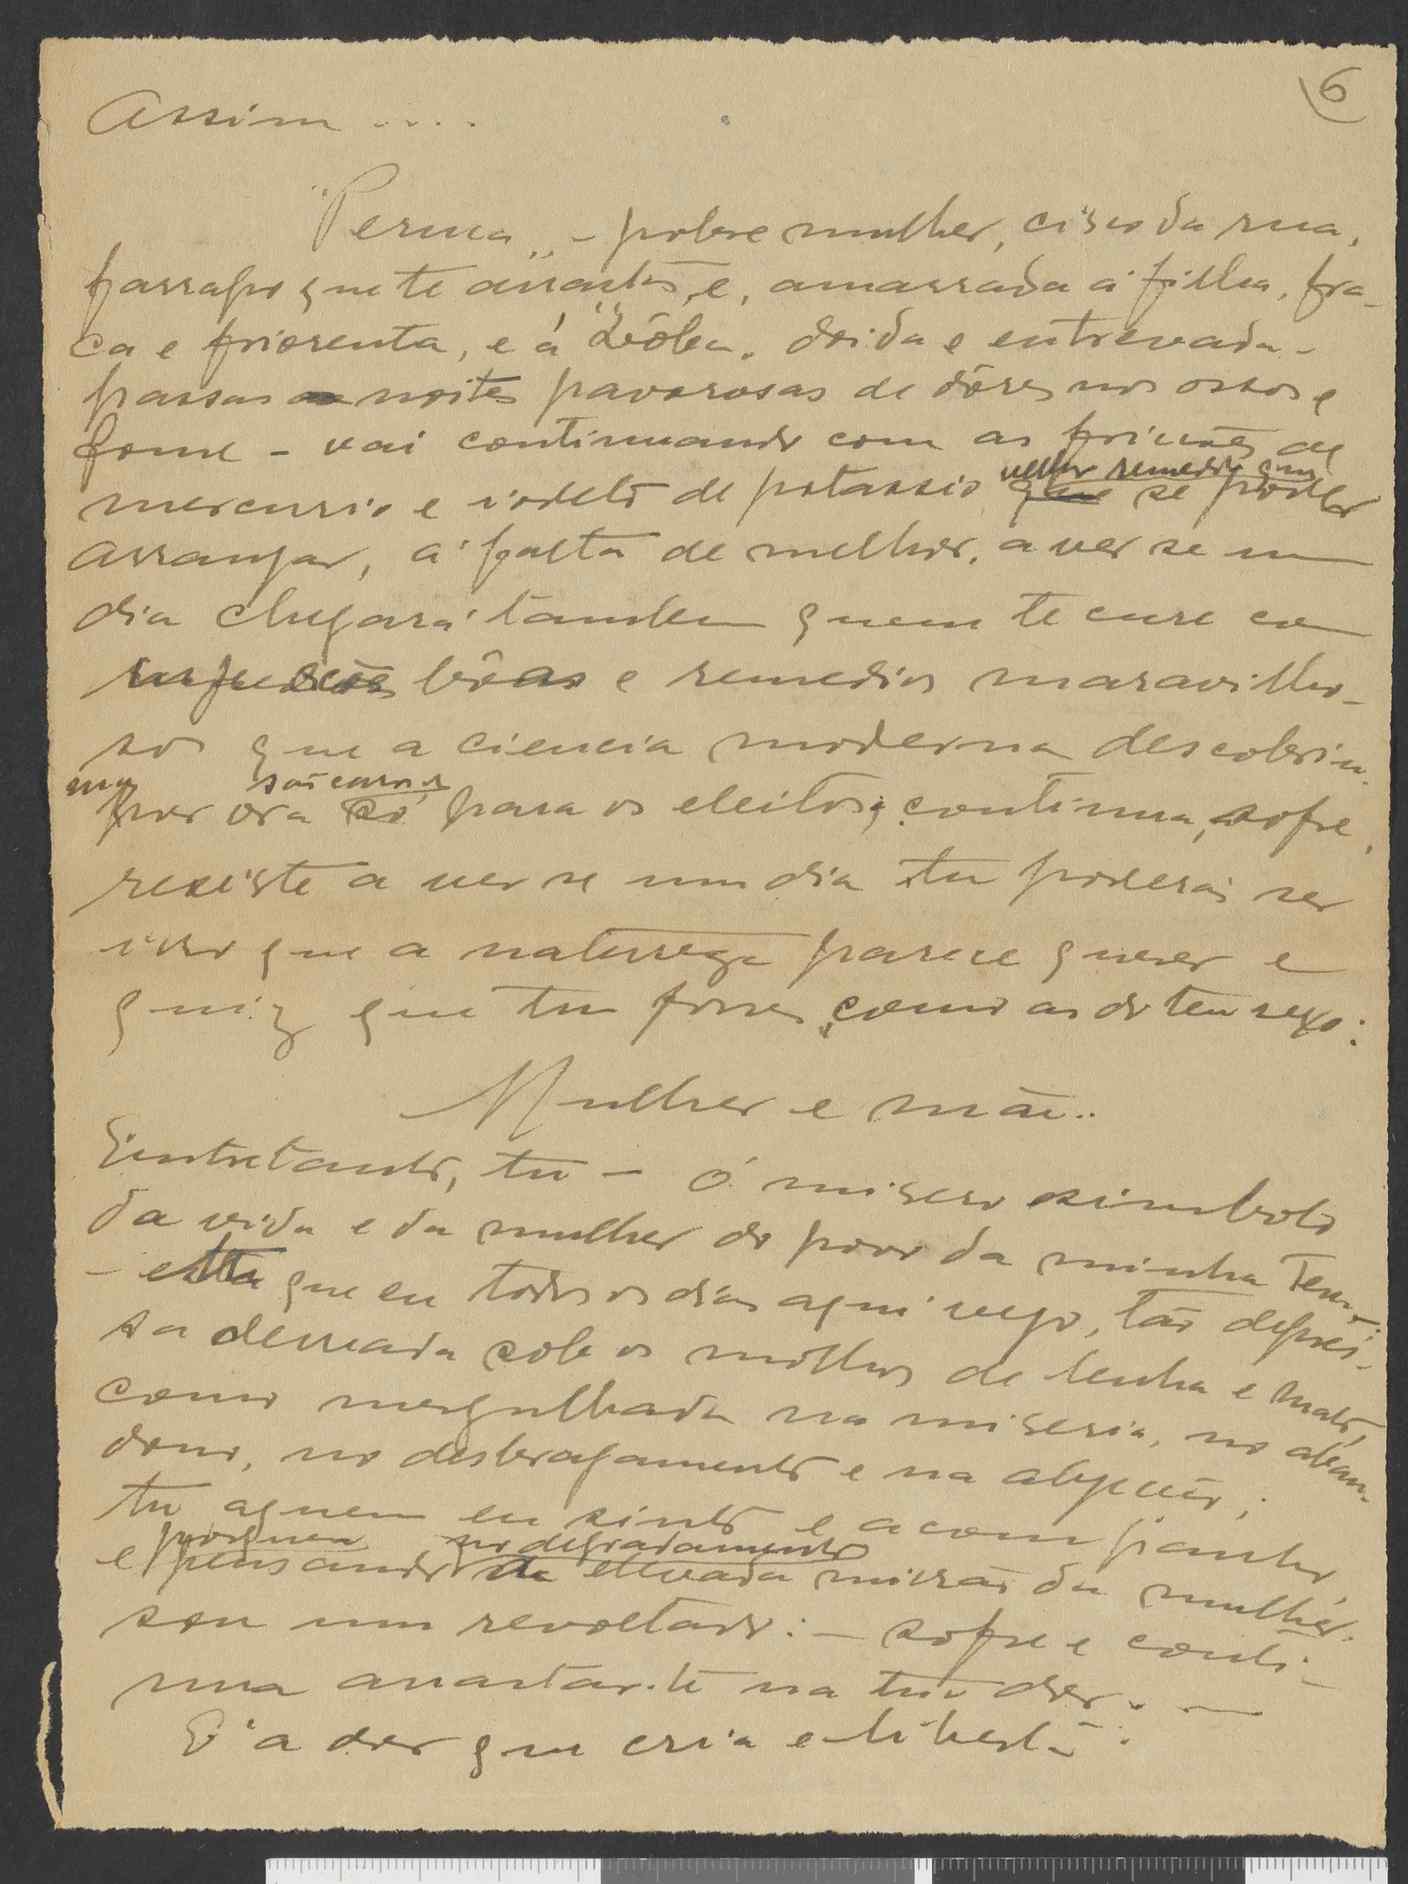 6
Assim ....
"Peruca" - pobre mulher, cisco da rua,
farrapo que te arrastas, e, amarrada á filha, fra-
ca e friorenta, e á "Zóla" doida e entrevada -
passas noites pavorosas de dôres nos ossos e
fome - vai continuando com as fricções de
mercurio e iodeto de potassio, velho remedio que se poder
arranjar, á falta de melhor, a ver se um
dia chegará tambem quem te cure com
injecções bôas e remedios maravilho-
sos que a ciencia moderna descobriu,
mas por ora são caros e só para os eleitos; continua, sofre,
resiste a ver se um dia tu poderás ser
isso que a natureza parece querer e
quiz que tu fosses, como as do teu sexo:
Mulher e mãe..
Entretanto, tu - ó misero simbolo
da vida e da mulher do povo da minha Terra;
- esta que eu todos os dias aqui vejo, tão depres-
sa derreada sob os mólhos de lenha e mato,
como mergulhada na miseria, no aban-
dono, no desbragamento e na abjecção;
tu a quem eu sinto e acompanho
e porque, pensando no degradamento da elevada missão da mulher,
sou um revoltado: - sofre e conti-
nua a arrastar-te na tua dôr. -
E' a dor que cria e liberta.